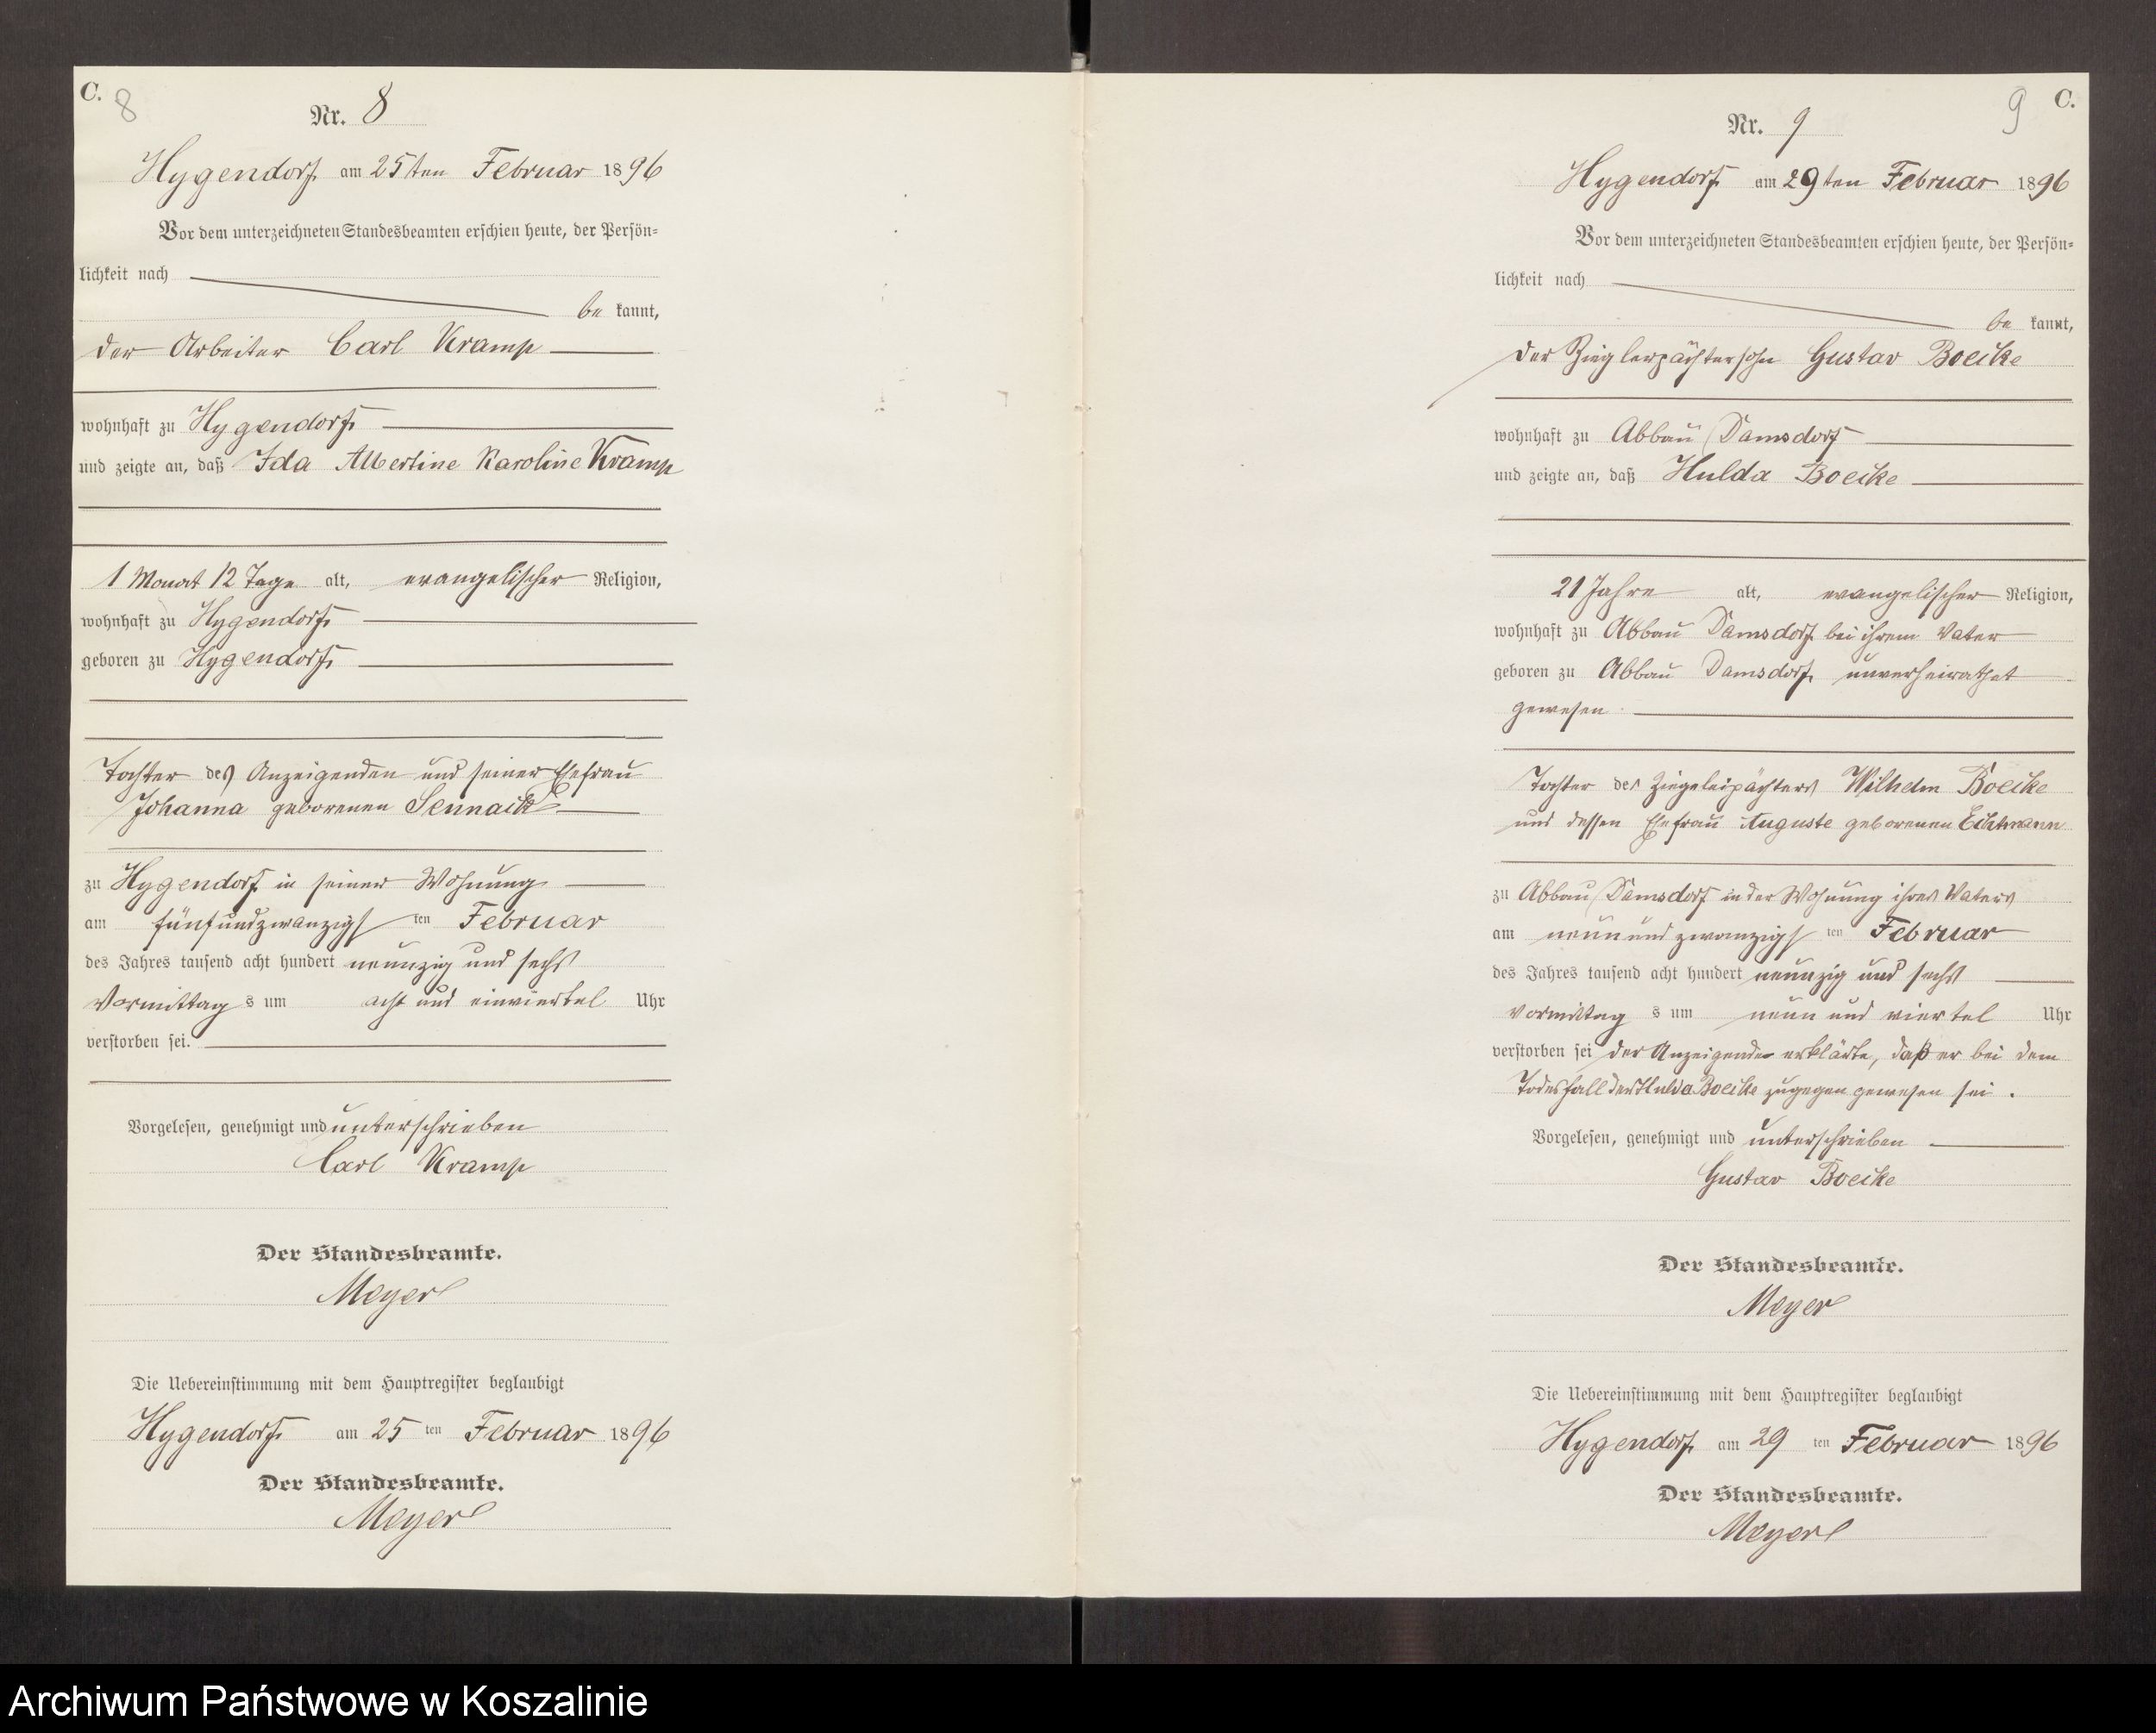 C.
8
Nr. 8
Hygendorf am 25ten Februar 1896
Vor dem unterzeichneten Standesbeamten erschien heute, der Persön-
lichkeit nach
be kannt,
der Arbeiter Carl Kramp
wohnhaft zu Hygendorf
und zeigte an, daß Ida Albertine Karoline Kramp
1 Monat 12 Tage alt, evangelischer Religion,
wohnhaft zu Hygendorf
geboren zu Hygendorf
Tochter des Anzeigenden und seiner Ehefrau
Johanna geborenen
zu Hygendorf in seiner Wohnung
am fünfundzwanzigs ten Februar
des Jahres tausend acht hundert neunzig und sechs
Vormittag s um acht und einviertel Uhr
verstorben sei.
Vorgelesen, genehmigt und unterschrieben
Carl Kramp
Der Standesbeamte.
Meyer
Die Uebereinstimmung mit dem Hauptregister beglaubigt
Hygendorf am 25 ten Februar 1896
Der Standesbeamte.
Meyer
9
C.
Nr. 9
Hygendorf am 29ten Februar 1896
Vor dem unterzeichneten Standesbeamten erschien heute, der Persön-
lichkeit nach
be kannt,
der Zieglerpächtersohn Gustav Boeike
wohnhaft zu Abbau Damsdorf
und zeigte an, daß Hulda Boeike
21 Jahre alt, evangelischer Religion,
wohnhaft zu Abbau Damsdorf bei ihrem Vater
geboren zu Abbau Damsdorf, unverheirathet
gewesen
Tochter des Ziegeleipächters Wilhelm Boeike
und dessen Ehefrau Auguste geborenen
zu Abbau Damsdorf in der Wohnung ihres Vaters
am neunundzwanzigs ten Februar
des Jahres tausend acht hundert neunzig und sechs
Vormittag s um neun und viertel Uhr
verstorben sei der Anzeigende erklärte, daß er bei dem
Todesfall der Hulda Boeike zugegen gewesen sei.
Vorgelesen, genehmigt und unterschrieben
Gustav Boeike
Der Standesbeamte.
Meyer
Die Uebereinstimmung mit dem Hauptregister beglaubigt
Hygendorf am 29 ten Februar 1896
Der Standesbeamte.
Meyer
Archiwum Państwowe w Koszalinie